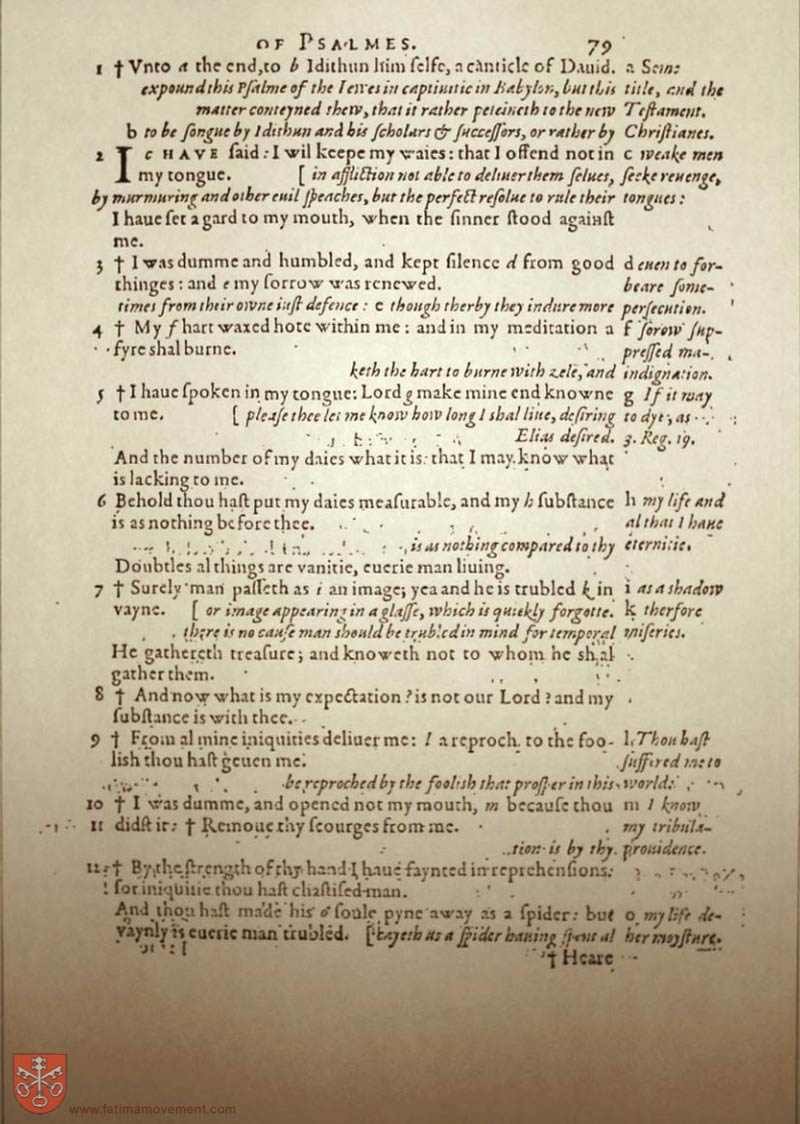 OF PSALMES. 79
1 † Vnto a the end, to b Idithun him selfe, a canticle of Dauid. a Som:
expound this Psalme of the Iewes in captiuitie in Babylon, but this title, and the
matter conteyned shew, that it rather perteineth to the new Testament.
b to be songue by Idithun and his scholars & successors, or rather by Christianes.
2 I c HAVE said: I wil keepe my waies: that I offend not in c weake men
my tongue. [ in affliction not able to deliuer them selues, seeke reuenge,
by murmuring and other euil speaches, but the perfect resolue to rule their tongues:
I haue set a gard to my mouth, when the sinner stood against
me.
3 † I was dumme and humbled, and kept silence d from good d euen to for-
thinges: and e my sorrow was renewed. beare some-
times from their owne iust defence: e though therby they indure more persecution.
4 † My f hart waxed hote within me: and in my meditation a f sorow sup-
fyre shal burne. pressed ma-
keth the hart to burne with zele, and indignation.
5 † I haue spoken in my tongue: Lord g make mine end knowne g If it may
to me. [ please thee let me know how long I shal liue, desiring to dye, as
Elias desired. 3. Reg. 19.
And the number of my daies what it is: that I may know what
is lacking to me.
6 Behold thou hast put my daies measurable, and my h substance h my life and
is as nothing before thee. al that I haue
is as nothing compared to thy eternitie.
Doubtles al things are vanitie, euerie man liuing.
7 † Surely man passeth as i an image; yea and he is trubled k in i as a shadow
vayne. [ or image appearing in a glasse, which is quickly forgotte. k therfore
there is no cause man should be trubled in mind for temporal miseries.
He gathereth treasure; and knoweth not to whom he shal
gather them.
8 † And now what is my expectation? is not our Lord? and my
substance is with thee.
9 † From al mine iniquities deliuer me: l a reproch to the foo- l Thou hast
lish thou hast geuen me. suffired me to
be reproched by the foolish that prosper in this world:
10 † I was dumme, and opened not my mouth, m because thou m I know
11 didst it: † Remoue thy scourges from me. my tribula-
tion is by thy prouidence.
12 † By the strength of thy hand I haue faynted in reprehensions:
for iniquitie thou hast chastised man.
And thou hast made his o soule pyne away as a spider: but o my life de-
vaynly is euerie man trubled. [ cayeth as a spider hauing spent al her moysture.
† Heare
www.fatimamovement.com